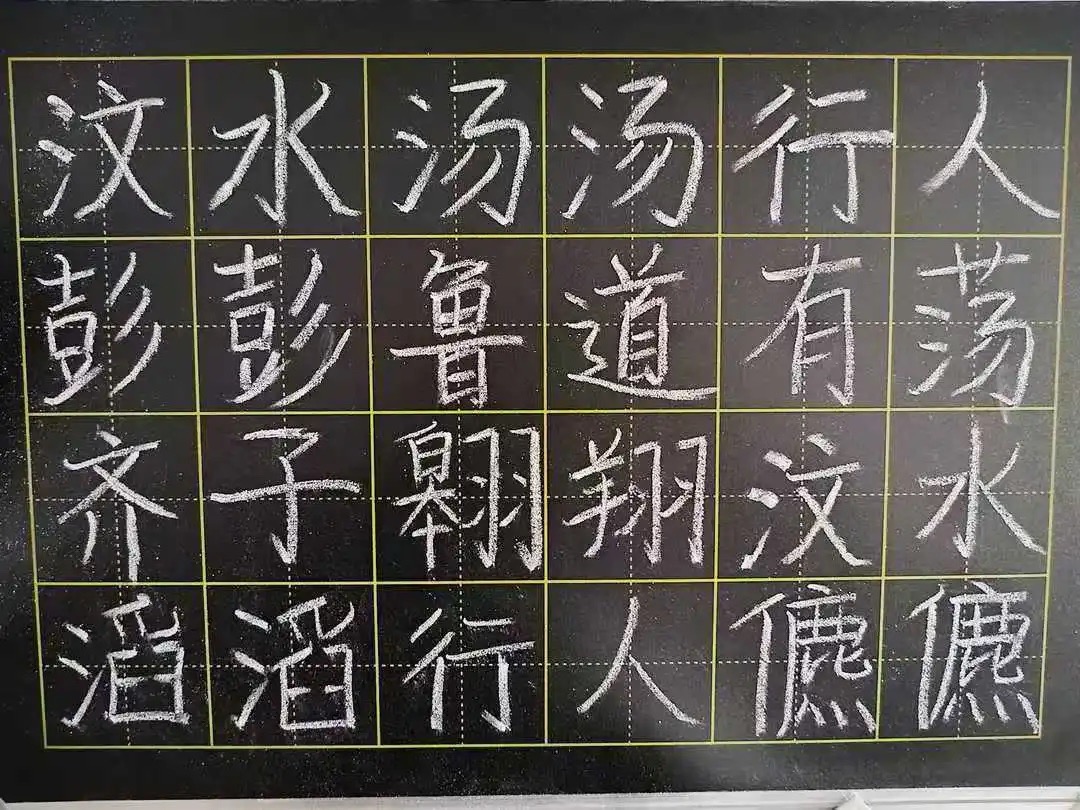 汶水汤汤行人
彭彭鲁道有荡
齐子翱翔汶水
滔滔行人儦儦